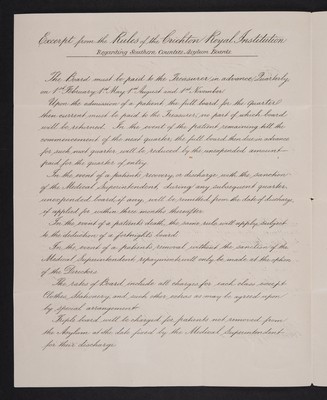 Excerpt from the Rules of the Crichton Royal Institution
Regarding Southern Counties Asylum Boards.
The Board must be paid to the Treasurer in advance, Quarterly,
on 1st February, 1st May, 1st August and 1st November
Upon the admission of a patient the full board for the Quarter
then current must be paid to the Treasurer, no part of which board
will be returned. In the event of the patient remaining till the
commencement of the next quarter, the full board then due in advance
for such next quarter will be reduced by the unexpended amount
paid for the quarter of entry.
In the event of a patient's recovery, or discharge, with the sanction
of the Medical Superintendent, during any subsequent quarter,
unexpended board, if any, will be remitted from the date of discharge,
if applied for within three months thereafter.
In the event of a patient's death, the same rule will apply, subject
to the deduction of a fortnight's board.
In the event of a patient's removal without the sanction of the
Medical Superintendent repayment will only be made at the option
of the Directors.
The rates of Board include all charges for each class except
Clothes, Stationery and such other extras as may be agreed upon
by special arrangement.
Triple board will be charged for patients not removed from
the Asylum at the date fixed by the Medical Superintendent
for their discharge.